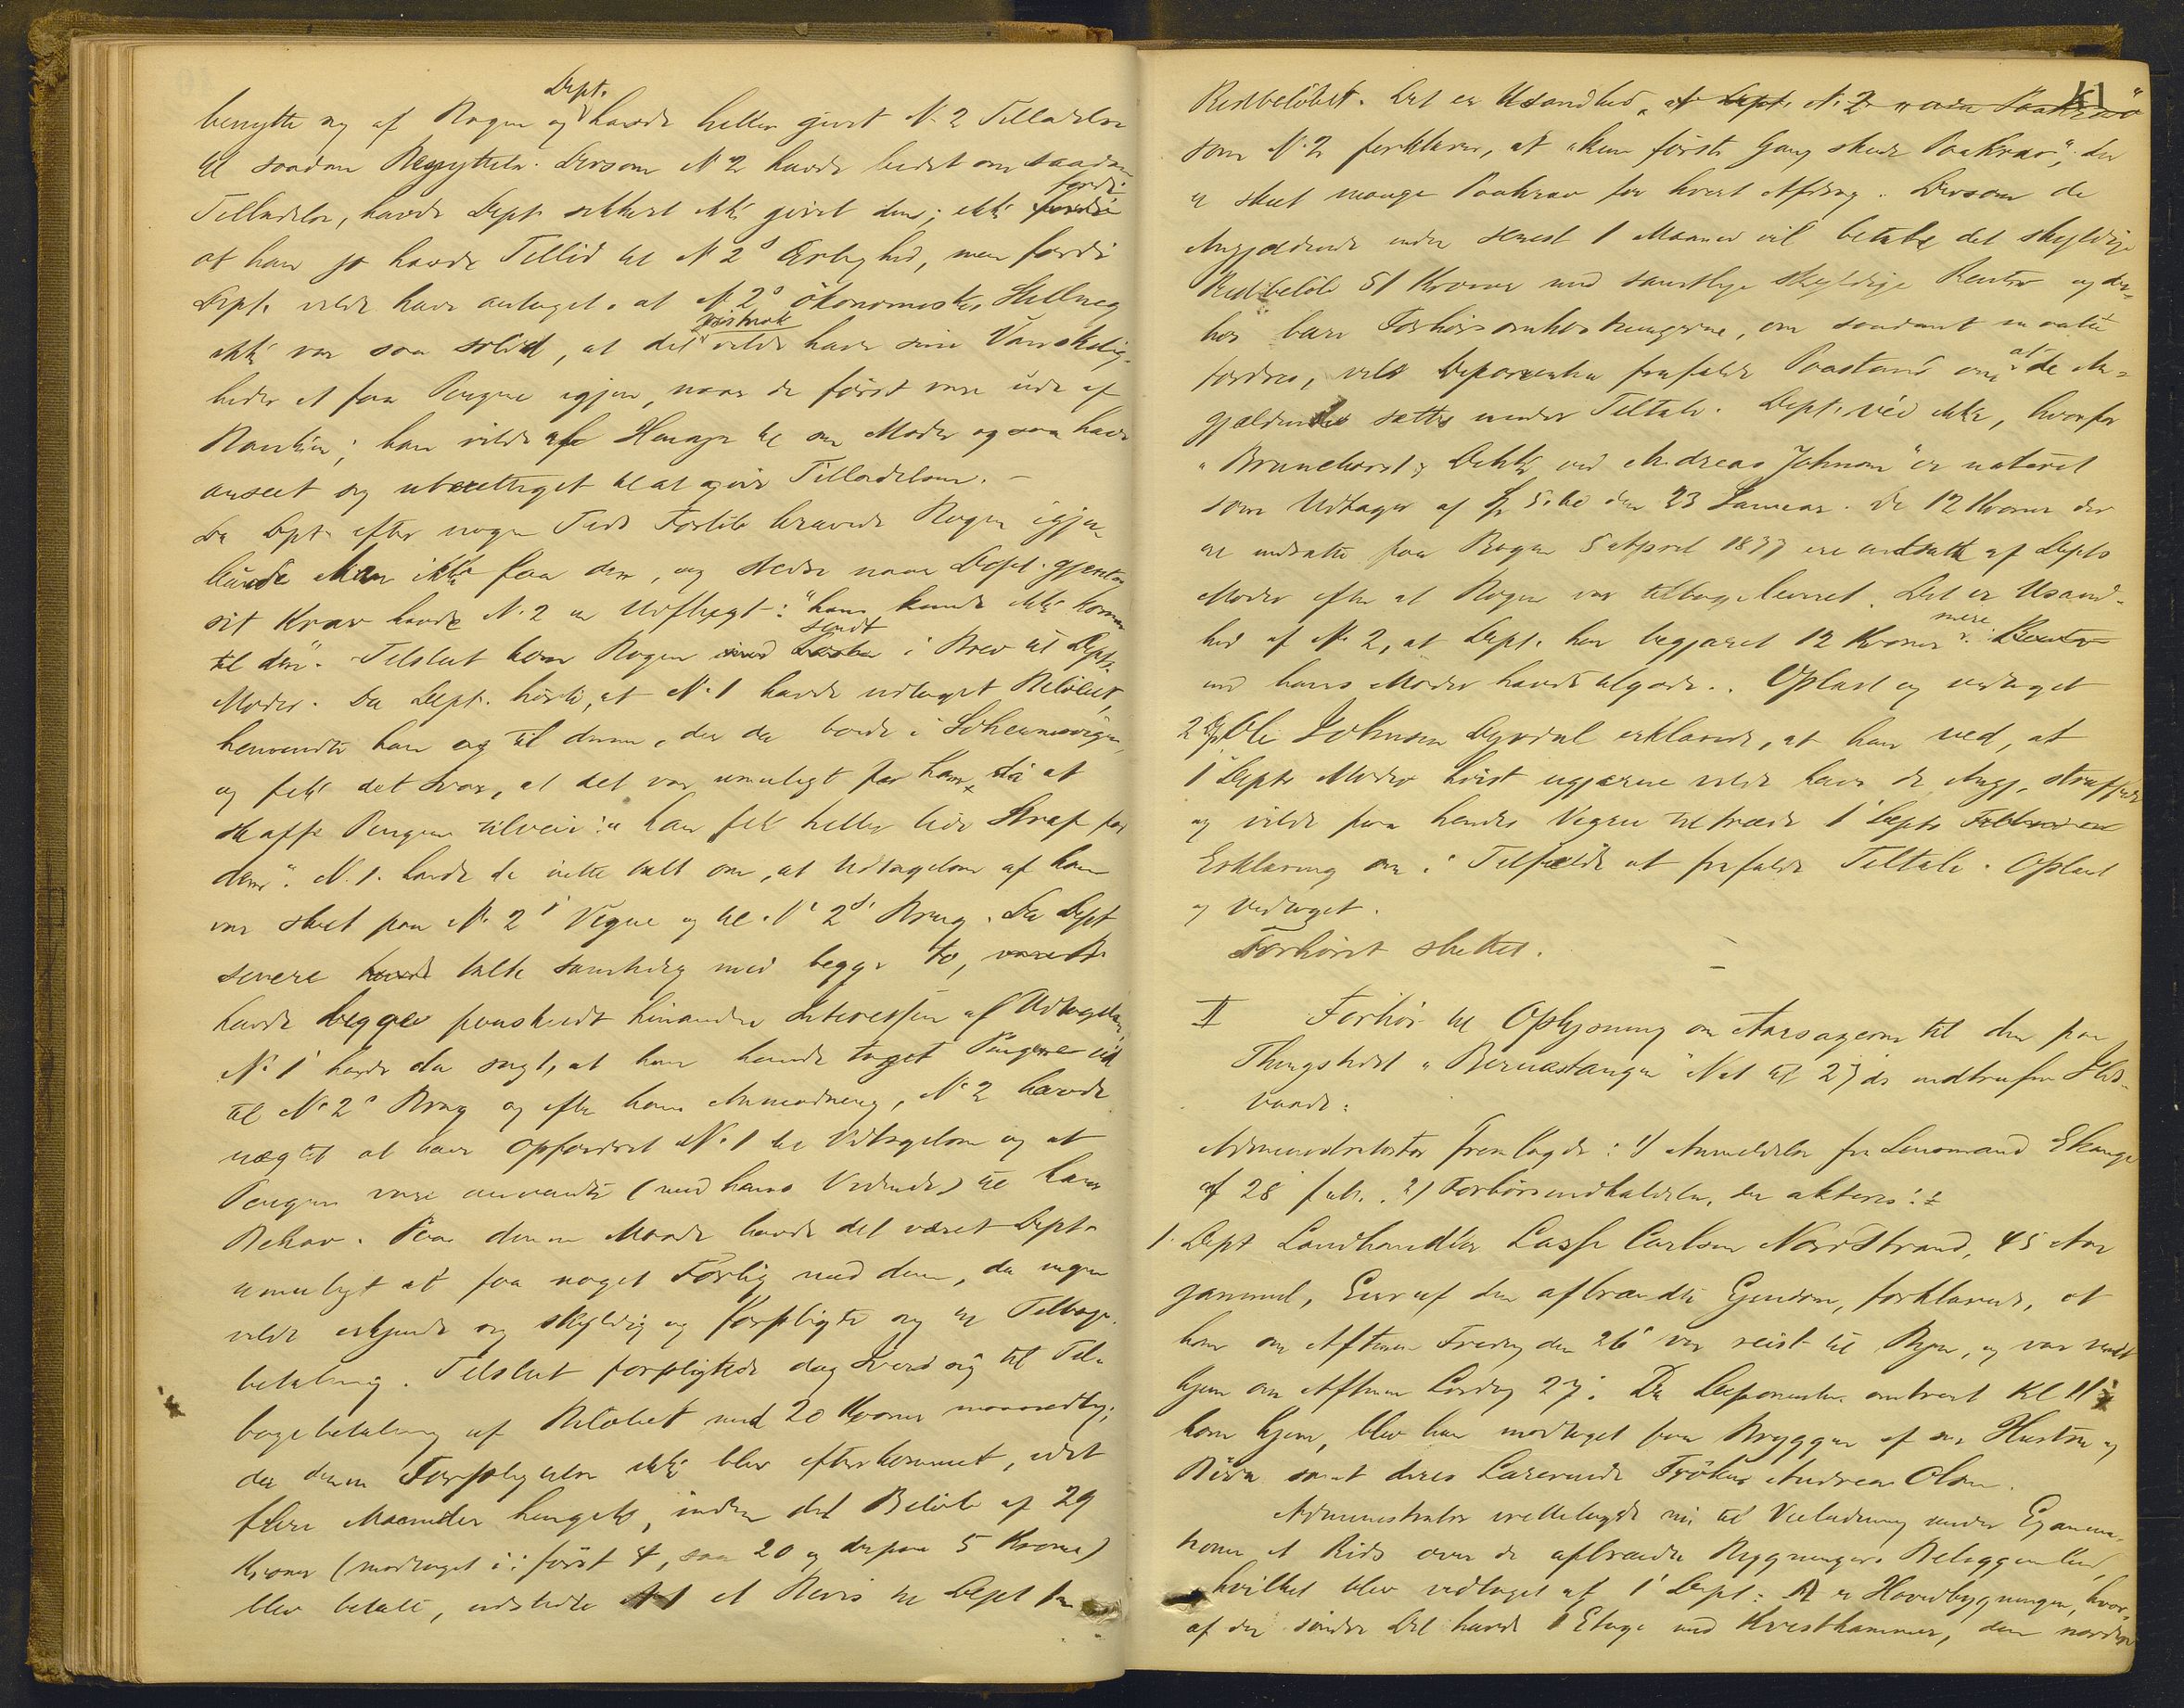 benytte sig af Bogen og Dept. havde heller givet N. 2 Tilladelse
til saadan Benyttelse. Dersom N 2 havde bedet om saadan
Tilladelse, havde Dept. sikkert ikke givet den; ikke fordi
at han jo havde Tillid til N 2s Ærlighed, men fordi
Dept. vilde have antaget, at N. 2s økonomiske Stilling
ikke var saa solid, at det vistnok vilde have sine Vanskelig-
heder at faa Pengene igjen, naar de først vare ude af
Banken; han vilde af Hensyn til sin Moder ogsaa have
anseet sig uberettiget til at give Tilladelsen. –
Da Dept. efter nogen Tids Forløb krævede Bogen igjen
kunde han ikke faa den, og stedse naar Dept. gjentog
sit Krav havde N. 2 en Udflugt: "han kunde ikke komme
til den". Tilslut kom Bogen sendt i Brev til Depts.
Moder. Da Dept. hørte, at N. 1 havde udtaget Beløbet,
henvendte han sig til denne, der da boede i
og fik det Svar, at det var umuligt for ham da at
skaffe Pengene tilveie: "han fik heller lide Straf for
dem". N. 1. havde da intet talt om, at Udtagelsen af ham
var skeet paa N. 2s Vegne og til N. 2s Brug. Da Dept
senere talte samtidig med begge to,
havde begge paaskudt hinandens Interesser af Udtagelsen,
N. 1 havde da sagt, at han havde taget Pengene ud
til N. 2s Brug og efter hans Anmodning, N. 2 havde
nægtet at have opfordret N. 1 til Udtagelsen og at
Pengene vare anvendte (med hans Vidende) til hans
Behov. Paa denne Maade havde det været Dept.
umuligt at faa noget Forlig med dem, da ingen
vilde erkjende sig skyldig og forpligte sig til Tilbage-
betaling. Tilslut forpligtede dog sig til Til-
bagebetaling af Beløbet med 20 Kroner maanedlig;
da denne Forpligtelse ikke blev efterkommet, idet
flere Maaneder hengik, inden det Beløb af 29
Kroner (modtaget i: først 4, saa 20 og derpaa 5 Kroner)
blev betalt, udstedte N 1 et Bevis til Dept
Restbeløbet. Det er Usandhed, at Dept. N. 2
som N. 2 forklarer, at "kun første Gang skede Paakrav"; der
er skeet mange Paakrav for hvert Afdrag. Dersom de
Angjældende inden senest 1 Maaned vil betale det skyldige
Restbeløb 51 Kroner med samtlige skyldige Renter og der-
hos bære Forhørsomkostningerne, om saadant maatte
fordres, vil Deponenten frafalde Paastand om at de An-
gjældende sættes under Tiltale. Dept. véd ikke, hvorfor
"Brunchorst & Dekke ved Andreas Johnson" er noteret
som Udtager af den 23 Januar. De 12 Kroner der
ere indsatte paa Bogen 5 April 1877 ere indsatte af Depts
Moder efter at Bogen var tilbageleveret. Det er Usand-
hed af N. 2, at Dept. har begjæret 12 Kroner mere
end hans Moder havde tilgode. Oplæst og vedtaget
2 Dpt Ole Johnsen erklærede, at han ved, at
1 Depts Moder høist ugjerne vilde have de Angj. straffede
og vilde paa hendes Vegne tiltræde 1 Depts
Erklæring om i Tilfælde at frafalde Tiltale. Oplæst
og vedtaget.
Forhøret sluttet.
II Forhør til Oplysning om Aarsagerne til den paa
Thingstedet "" Nat til 27 ds indtrufne Ilds-
vaade.
Administrator fremlagde: 1/ Anmeldelse fra Lensmand
af 28 febr. 2/ Forhørsindkaldelse, der akteres:
1. Dept Landhandler Lasse Carlsen Nordstrand, 45 Aar
gammel, Eier af den afbrændte Eiendom, forklarede, at
han om Aftenen Fredag den 26 var reist til Byen, og var vendt
hjem om Aftenen Lørdag 27. Da Deponenten omtrent Kl 11
kom hjem, blev han modtaget paa Bryggen af sin Hustru og
Børn samt deres Lærerinde Frøken Andrea Olsen.
Administrator irettelagde nu til Veiledning under Examina-
tionen et Rids over de afbrændte Bygningers Beliggenhed,
hvilket blev vedtaget af 1 Dept: A er Hovedbygningen, hvor-
af den søndre Del havde 1 Etage med Kvistkammer, den nordre